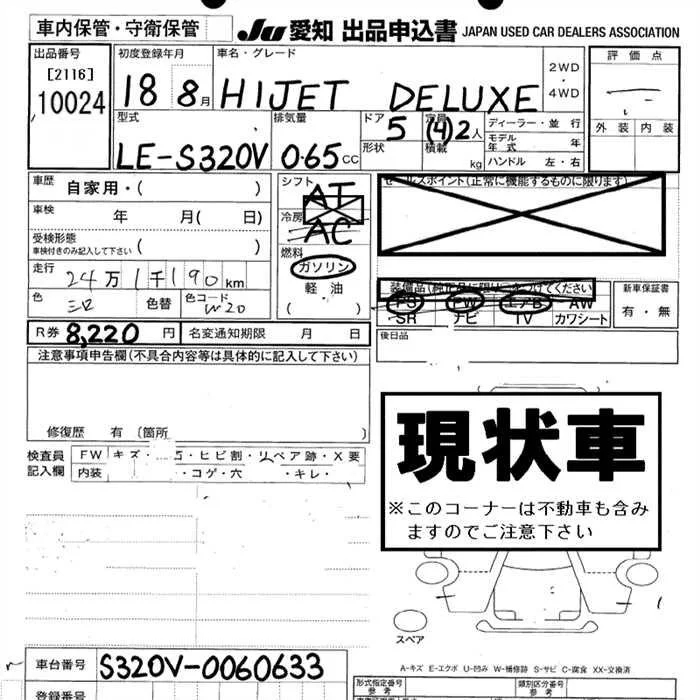 車内保管・守衛保管
JU 愛知 出品申込書 JAPAN USED CAR DEALERS ASSOCIATION
出品番号
[2116]
10024
初度登録年月
18 8月
車名・グレード
HIJET DELUXE
2WD
・
4WD
評価点
外装 内装
型式
LE-S320V
排気量
0.65CC
ドア
5
形状
定員
(4)2人
積載 kg
ディーラー・並行
モデル
年式 年
ハンドル 左・右
車歴 自家用・( )
車検 年 月( 日)
受検形態
車検付きのみ記入して下さい ( )
走行 24万1千190km
色 色替 色コード W20
シフト
AT
冷房
AC
燃料
ガソリン
軽油
( )
セールスポイント(正常に機能するものに限ります)
装備品(純正品に限り○をつけてください)
PS PW エアB AW
SR ナビ TV カワシート
新車保証書
有・無
後日品
R券 8,220円 名変通知期限 月 日
注意事項申告欄(不具合内容等は具体的に記入して下さい)
修復歴 有 〔箇所 〕
検査員
記入欄
FW キズ・ ・ヒビ割・リペア跡・X要
内装 ・コゲ・穴 ・キレ・
現状車
※このコーナーは不動車も含み
ますのでご注意下さい
スペア
A-キズ E-エクボ U-凹み W-補修跡 S-サビ C-腐食 XX-交換済
車台番号 S320V-0060633
登録番号
形式指定番号
参考
類別区分番号
参考